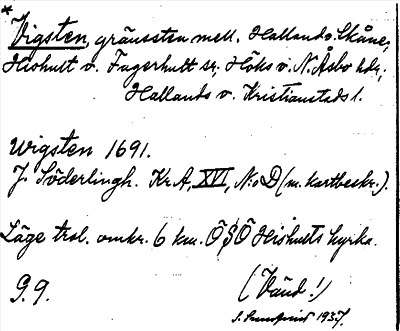 *
Vigsten, gränssten mell. Halland o. Skåne,
Hishult o. Fagerhult sr, Höks o. N. Åsbo hdr,
Hallands o. Kristianstads l.
Wigsten 1691.
J. Söderlingh. Kr.A, XVI, N:o D (m. kartbeskr.).
Läge trol. omkr. 6 km. Ö § Ö Hishults kyrka.
G. 9.
(Vänd!)
S. Sundqvist 1937.